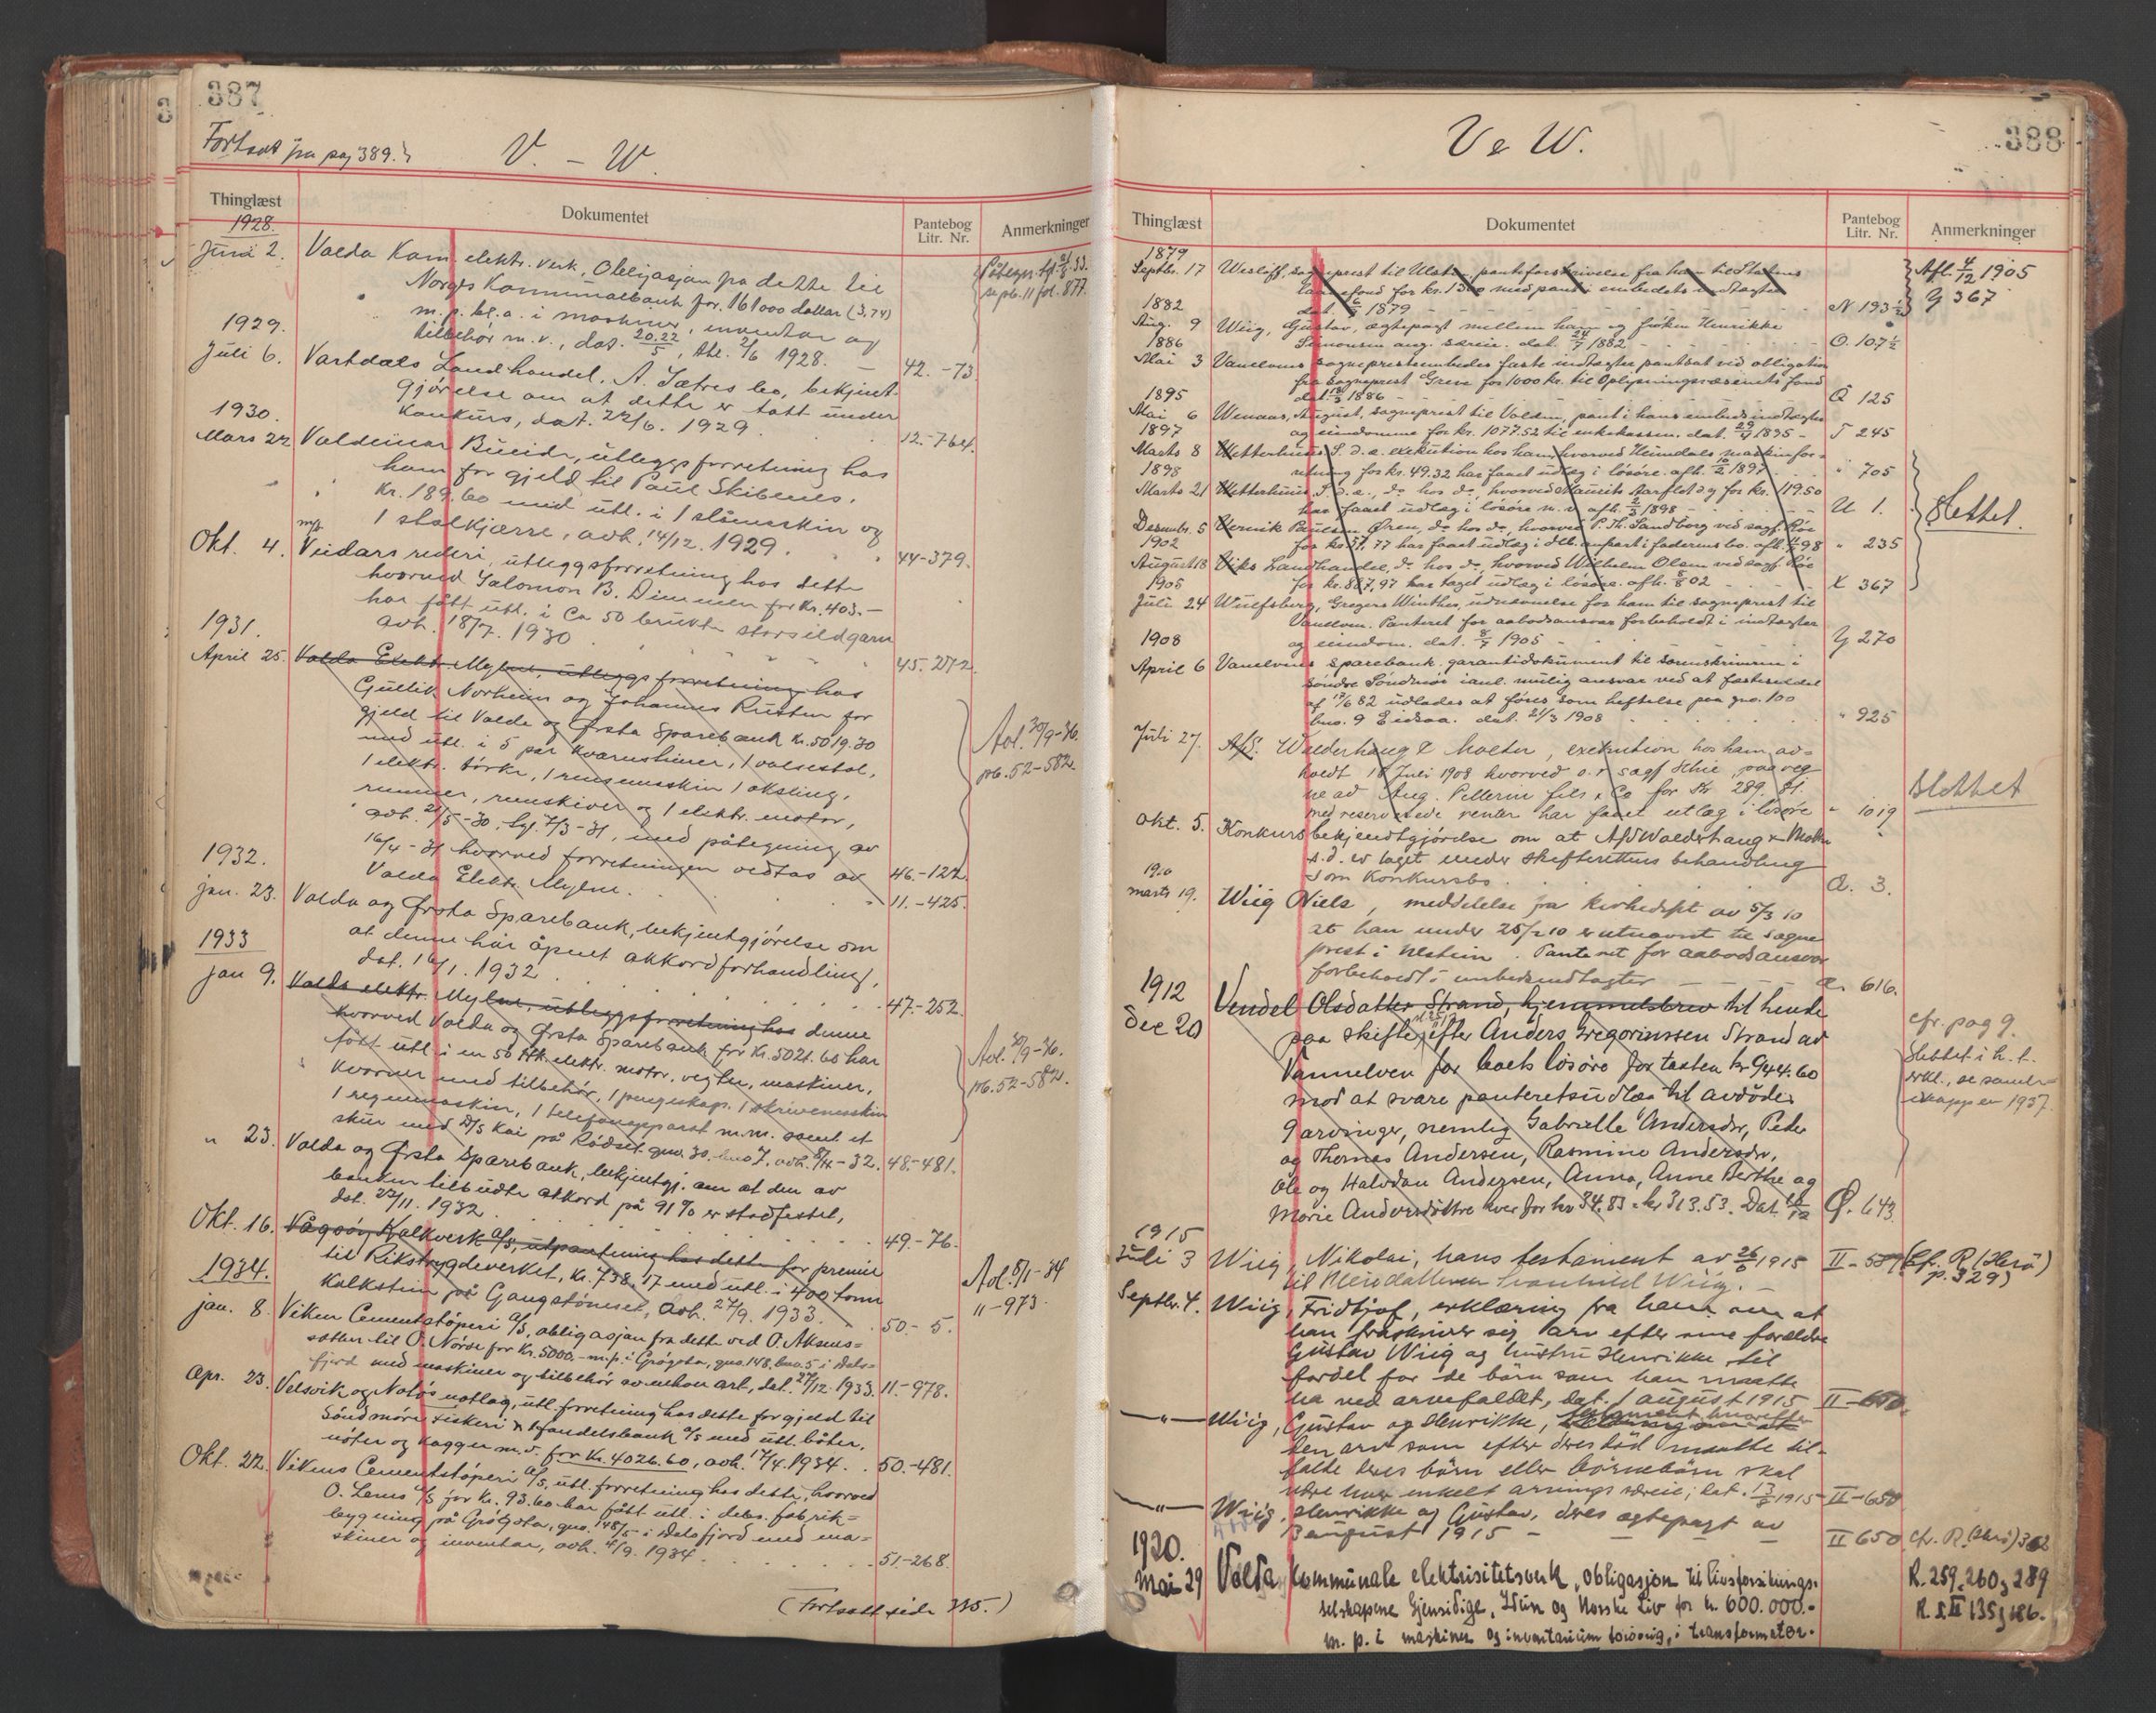 387
Fortsat fra pag 389.
V. – W.
Thinglæst
Dokumentet
Pantebog
Litr. Nr.
Anmerkninger
1928.
Juni 2. Volda Kom. elektr. verk, Obligasjon fra dette til
Norges Kommunalbank for 161000 dollar (3,74)
m. p. bl. a. i maskiner, inventar og
tilbehør m. v., dat. 20.22/5, 2/6 1928. — 42.-73.
1929.
Juli 6. Vartdals Landhandel, A. Sætres bo, bekjent-
gjørelse om at dette er tatt under
konkurs, dat. 22/6. 1929. 12.-764.
1930.
Mars 22 Valdemar Bueide, utleggsforretning hos
ham for gjeld til Paul Skibenes.
Kr. 189.60 med utl. i 1 slåmaskin og
1 stolkjærre, avh. 14/12. 1929. 44-379.
Okt. 4. m/k Veidars rederi, utleggsforretning hos dette
hvorved Salomon B. Dimmen for Kr. 403.–
har fått utl. i Ca 50 brukte storsildgarn
avh. 18/7. 1930 45.-272.
1931.
April 25. Volda Elektr. Mylne, utleggsforretning hos
Gullik Norheim og Johannes Rusten for
gjeld til Volda og Ørsta Sparebank Kr. 5019.30
med utl. i 5 par kvernstener, 1 valsestol,
1 elektr. tørke, 1 rensemaskin 1 aksling,
remmer, remskiver og 1 elektr. motor,
avh. 21/5-30, tgl. 7/3-31, med påtegning av
16/4-31 hvorved forretningen vedtas av 46.-122.
Volda Elektr. Mylne. 11.-425.
Avl. 30/9-36.
pb. 52-582.
1932.
jan. 23. Volda og Ørsta Sparebank, bekjentgjørelse om
at denne har åpnet akkordforhandling,
dat. 16/1. 1932 47.-252.
1933
jan 9. Volda elektr. Mylne, utleggsforretning hos denne
hvorved Volda og Ørsta Sparebank for Kr. 5021.60 har
fått utl. i en 50 Hk. elektr. motor, vegter, maskiner,
kverner med tilbehør, 1 pengeskap, 1 skrivemaskin
1 regnemaskin, 1 telefonapparat m.m. samt et
skur med D/S Kai på Rødset gno. 30. bno 7, avh. 8/11-32. 48.-481.
Avl. 30/9-36.
pb. 52-582.
" 23. Volda og Ørsta Sparebank, bekjentgj. om at den av
banken tilbudte akkord på 91% er stadfestet,
dat. 22/11. 1932 49.-76.
Okt. 16. Vågsøy Kalkverk A/S, utpantning hos dette for premie
til Rikstrygdeverket, Kr. 738.17 med utl. i 400 tonn
Kalksten på Gangstøneset, avh. 27/9. 1933. 50.- 5.
Avl. 8/1-34
11-973.
1934.
jan. 8. Viken Cementstøperi A/S, obligasjon fra dette ved O. Aksnes-
sæther til O. Nørve for Kr. 5000.- m.p. i Grógota, gno. 148, bno. 5 i Dals-
fjord med maskiner og tilbehør av enhver art, dat. 27/12. 1933. 11.-978.
Apr. 23. Velsvik og Notøs notlag, utl. forretning hos dette for gjeld til
Søndmøre Fiskeri & Handelsbank A/S med utl. båter,
nøter og kagger m.v. for Kr. 4026.60, avh. 17/4. 1934. 50.-481.
Okt. 22. Vikens Cementstøperi A/S, utl. forretning hos dette, hvorved
O. Lems A/S for Kr. 93.60 har fått utl. i dets fabrik-
bygning på Grógota, gno. 148/5 i Dalsfjord med ma-
skiner og inventar, avh. 4/9. 1934. 51-268.
(Fortsatt side 335.)
388
V & W.
Thinglæst
Dokumentet
Pantebog
Litr. Nr.
Anmerkninger
1879
Septbr. 17 sogneprest til Ulsten, pantforskrivelse fra ham til Statens
Laanefond for kr. 1300 med pant i embedets indtægter
dat. 1879 N 193½
Afl. 4/12 1905
Y 367
1882
Aug. 9 Wiig, Gustav, ægtepagt mellem ham og frøken Henrikke
Simonsen ang. særeie. dat. 24/7 1882 O. 107½
1886
Mai 3 Vanelvens sogneprestembedes faste indtægter pantsat ved obligation
fra sogneprest Greve for 1000 kr. til Oplysningsvæsenets fond
dat. 1886 Q 125
1895
Mai 6 Wenaas, August, sogneprest til Volden, pant i hans embedsindtægter
og eiendomme for kr. 1077.52 til enkekassen. dat. 29/4 1895 - T 245
1897
Marts 8 Wetterhuus S. d. æ. exekution hos ham, hvorved Heimdals maskinfor-
retning for kr. 49.32 har faaet udlæg i løsøre. afh. 1897 " 705
1898
Marts 21 Wetterhuus, S. d. æ., do hos do, hvorved Maurits Aarflot d.y. for kr. 119.50
har faaet udlæg i løsøre m. v. afh. 2/3 1898 U 1.
Decembr. 5 Vernik Paulsen Øren, do hos do, hvorved P. Th. Sandborg ved sagf. Röe
for kr. 37,77 har faaet udlæg i deb. arvepart i faderens bo. afh. 98 " 235
Slettet.
1902
August 18 Viks Landhandel, do hos do, hvorved Wilhelm Olsen ved sagf. Röe
for kr. 887,97 har taget udlæg i løsøre. afh. 8/8 02 X 367
1905
Juli 24 Wulfsberg, Gregers Winther, udnævnelse for ham til sogneprest til
Vanelven. Panteret for aabodsansvar forbeholdt i indtægter
og eiendom. dat. 8/7 1905 Y 270
1908
April 6 Vanelvens sparebank. garantidokument til sorenskriveren i
søndre Söndmör i anl. mulig ansvar ved at fæsteseddel
af 17/6 82 udlades at føres som heftelse paa gno. 100
bno. 9 Eidsaa. dat. 21/3 1908 " 925
Juli 27. A/S. Walderhaug & Molter, exekution hos ham av-
holdt 18 Juli 1908 hvorved o. r. sagf. Hhie paa veg
ne av Aug. Pellerin fils & Co for Kr 289.81
med reserverede renter har faaet utlæg i løsøre " 1019
Slettet
Okt. 5. Konkursbekjendtgjørelse om at A/S Walderhaug & Molter
s. d. er taget under skifterettens behandling
som Konkursbo. Q. 3.
1910
marts 19. Wiig Niels, meddelelse fra Kirkedept av 5/3 10
at han under 25/2 10 er utnævnt til sogne
prest i Ulstein. Panteret for aabodsansvar
forbeholdt i embedsindtægter 616.
1912
Dec 20 Vendel Olsdatter Strand, hjemmelsbrev til hende
paa skifte efter Anders Gregoriussen Strand av
Vannelven for boets løsøre for taxten kr 944.60
mod at svare panteretsudlæg til avdødes
9 arvinger, nemlig Gabrielle Andersdtr, Peder
og Thomas Andersen, Rasmine Andersdtr,
Ole og Halvdan Andersen, Anna, Anne Berthe og
Marie Andersdøttre hver for kr 34.83 = kr 313.53. Dat. Ø. 643
cfr. pag 9.
Slettet i h. t.
erkl., se samle-
mappen 1937.
1915
Juli 3 Wiig, Nikolai, hans testament av 26/6 1915
til Pleiedatteren Svanhild Wiig. – II – 589
(Cfr. R (Herø)
p. 329)
Septbr. 4. Wiig, Fridtjof, erklæring fra ham om at
han fraskriver sig arv efter sine forældre
Gustav Wiig og hustru Henrikke, til
fordel for de børn som han maatte
ha ved arvefaldet, dat. 1 august 1915 II – 650.
— " — Wiig, Gustav og Henrikke, testament hvorefter
den arv som efter deres død maatte til-
falde deres børn eller børnebørn skal
være hver enkelt arvings særeie; dat. 13/8 1915 – II – 650
— " — Wiig, Henrikke og Gustav, deres ægtepagt av
13 august 1915 – II 650 cfr. R. (Herö) 362
1920.
Mai 29 Volda kommunale elektrisitetsverk, obligasjon til livsforsikrings-
selskapene Gjensidige, Idun og Norske Liv for kr. 600.000.-
m. p. i maskiner og inventarium forøvrig, i transformator-
R. 259, 260 og 289
R. S. II 135 g 186.